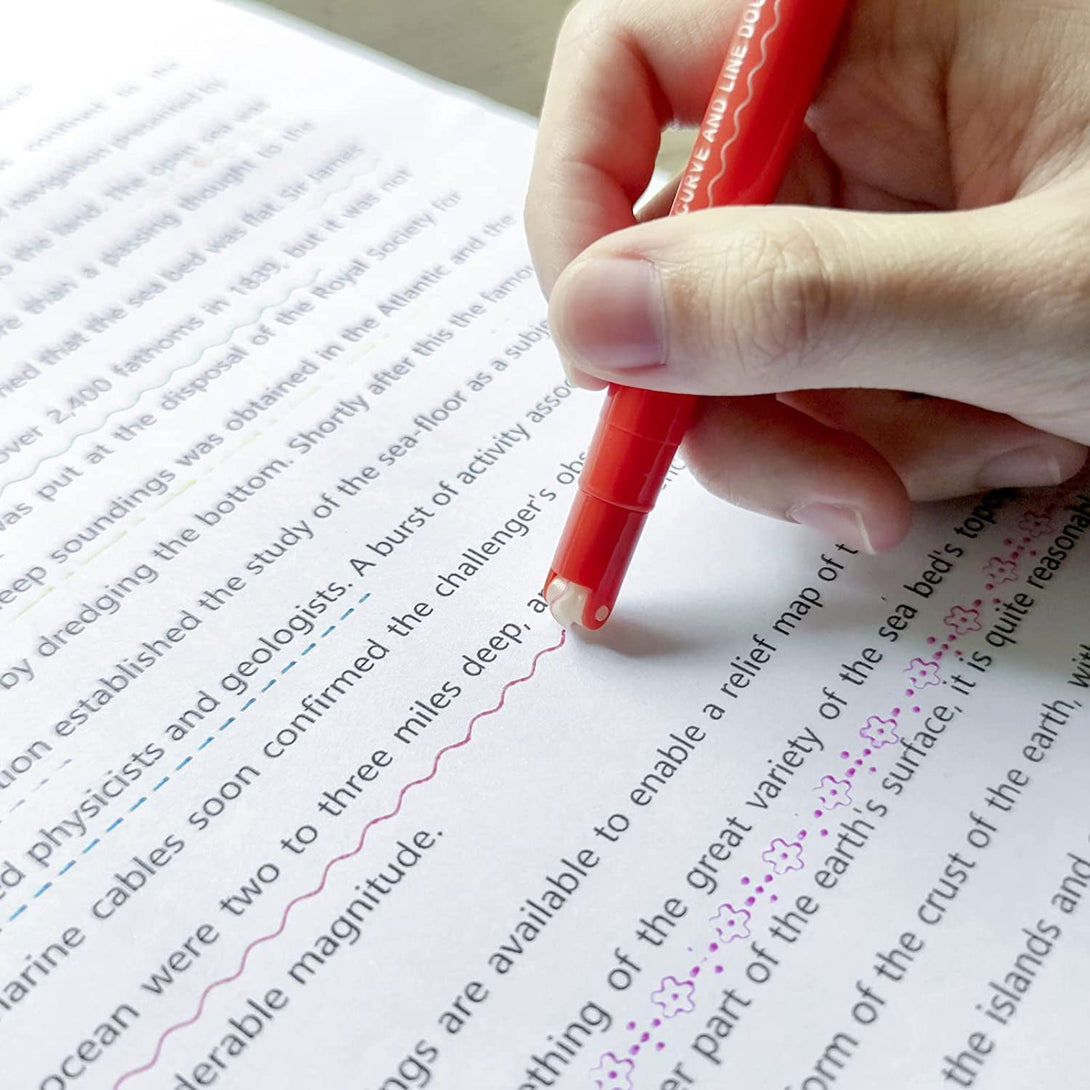 CURVE AND LINE DOU
navigation presented by
the land. The
than a passing thought to the
that the sea bed was flat. Sir James
over 2,400 fathoms in 1839, but it was not
was put at the disposal of the Royal Society for
eep soundings was obtained in the Atlantic and the
by dredging the bottom. Shortly after this the famo
established the study of the sea-floor as a subje
physicists and geologists. A burst of activity asso
arine cables soon confirmed the challenger's obs
ocean were two to three miles deep, a
derable magnitude.
ngs are available to enable a relief map of t
ething of the great variety of the sea bed's topo
er part of the earth's surface, it is quite reasonab
orm of the crust of the earth, with
the islands and